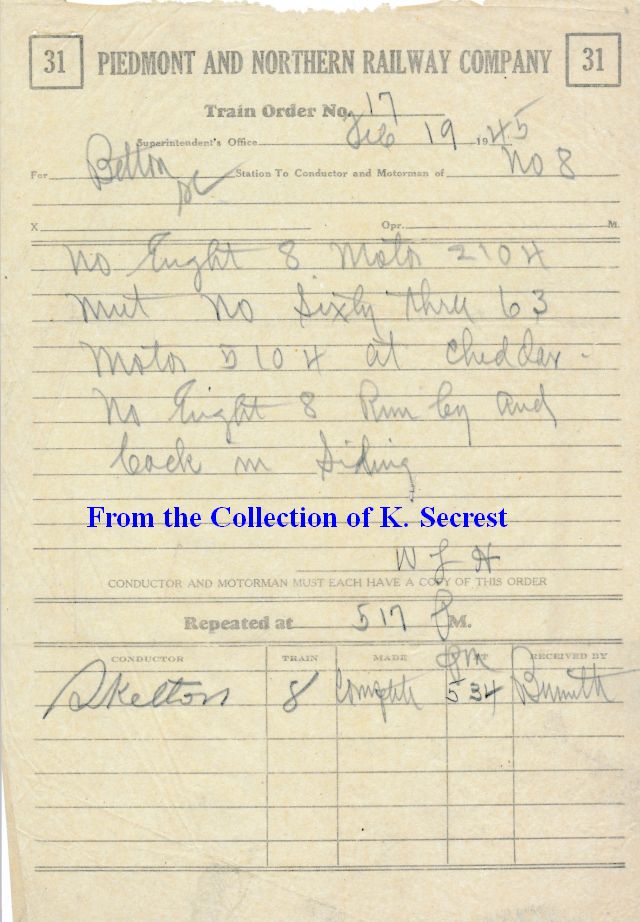 31 PIEDMONT AND NORTHERN RAILWAY COMPANY 31
Train Order No. 17
Superintendent's Office Feb 19 1945
For Belton SC Station To Conductor and Motorman of No 8
X Opr. M.
No Eight 8 Motor 2104
meet No Sixty three 63
Motor 5104 at Cheddar -
No Eight 8 Run by and
back in Siding
From the Collection of K. Secrest
W J H
CONDUCTOR AND MOTORMAN MUST EACH HAVE A COPY OF THIS ORDER
Repeated at 517 P M.
CONDUCTOR TRAIN MADE AT RECEIVED BY
PM
Skelton 8 Complete 534